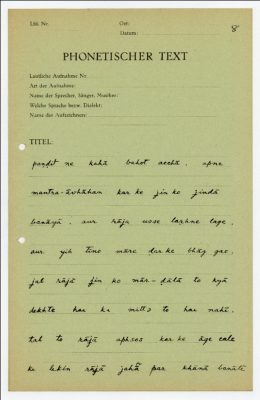 Lfd. Nr.
Ort:
Datum:
8
PHONETISCHER TEXT
Lautliche Aufnahme Nr.
Art der Aufnahme:
Name der Sprecher, Sänger, Musiker:
Welche Sprache bezw. Dialekt:
Name des Aufzeichners:
TITEL:
paṇḍit ne kahā bahot acchā, apne
mantra-āvhāhan kar ke jin ko jindā
banāyā, aur rāja usse laṛhne lage,
aur yih tīno māre dar ke bhāg gae,
jab rājā jin ko mār-ḍālā to kyā
dekhte hai ki mittī to hai nahī,
tab to rājā aphsos kar ke āge cale
ke lekin rājā jahā̃ par khānā banāte